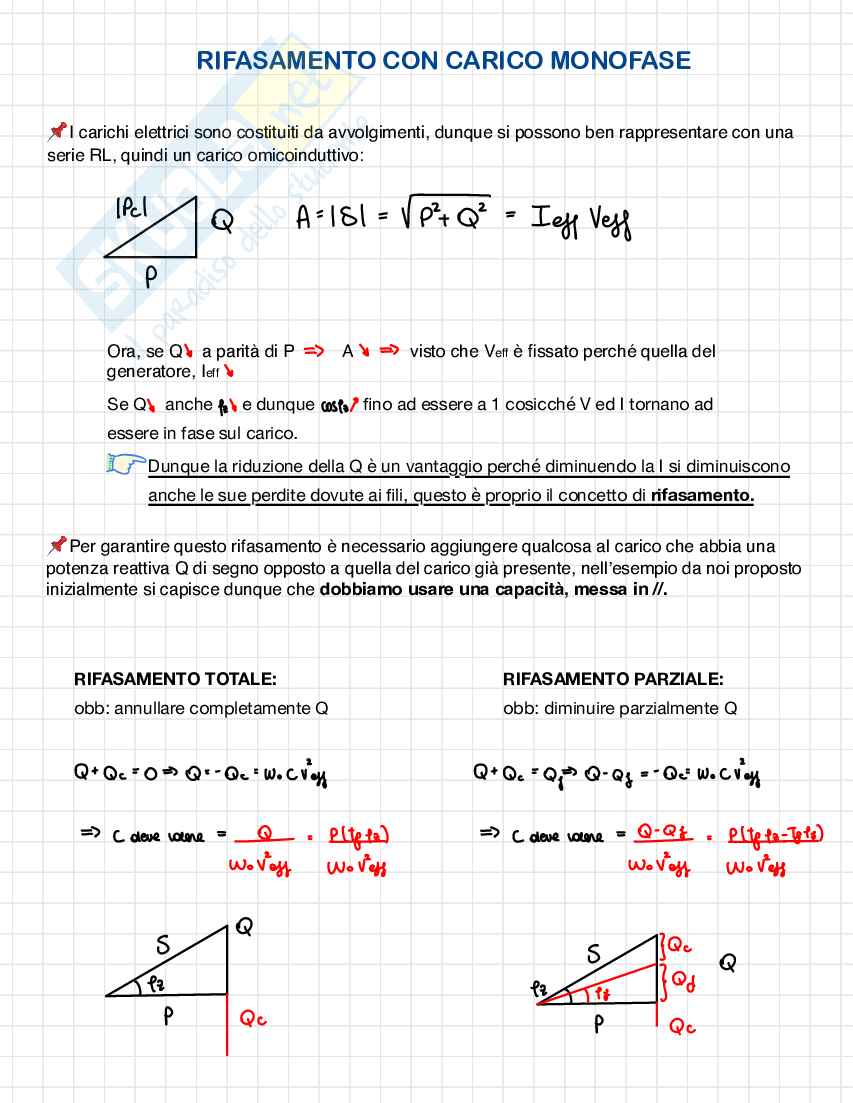 RIFASAMENTO CON CARICO MONOFASE
SKUOLA.net
il paradiso dello studente
I carichi elettrici sono costituiti da avvolgimenti, dunque si possono ben rappresentare con una
serie RL, quindi un carico omicoinduttivo:
|Pc|
Q
P
A = |S| = √P²+Q² = Ieff Veff
Ora, se Q↘ a parità di P ⇒ A ↘ ⇒ visto che Veff è fissato perché quella del
generatore, Ieff ↘
Se Q↘ anche φz↘ e dunque cosφz↗ fino ad essere a 1 cosicché V ed I tornano ad
essere in fase sul carico.
Dunque la riduzione della Q è un vantaggio perché diminuendo la I si diminuiscono
anche le sue perdite dovute ai fili, questo è proprio il concetto di rifasamento.
Per garantire questo rifasamento è necessario aggiungere qualcosa al carico che abbia una
potenza reattiva Q di segno opposto a quella del carico già presente, nell'esempio da noi proposto
inizialmente si capisce dunque che dobbiamo usare una capacità, messa in //.
RIFASAMENTO TOTALE:
obb: annullare completamente Q
Q + Qc = 0 ⇒ Q = -Qc = ω₀ C V²eff
⇒ C deve valere = Q / ω₀ V²eff = P(tgφz) / ω₀ V²eff
S
Q
φz
P
Qc
RIFASAMENTO PARZIALE:
obb: diminuire parzialmente Q
Q + Qc = Qf ⇒ Q - Qf = -Qc = ω₀ C V²eff
⇒ C deve valere = Q - Qf / ω₀ V²eff = P(tgφz - Tgφf) / ω₀ V²eff
S
Qc
Q
Qf
φz
φf
P
Qc